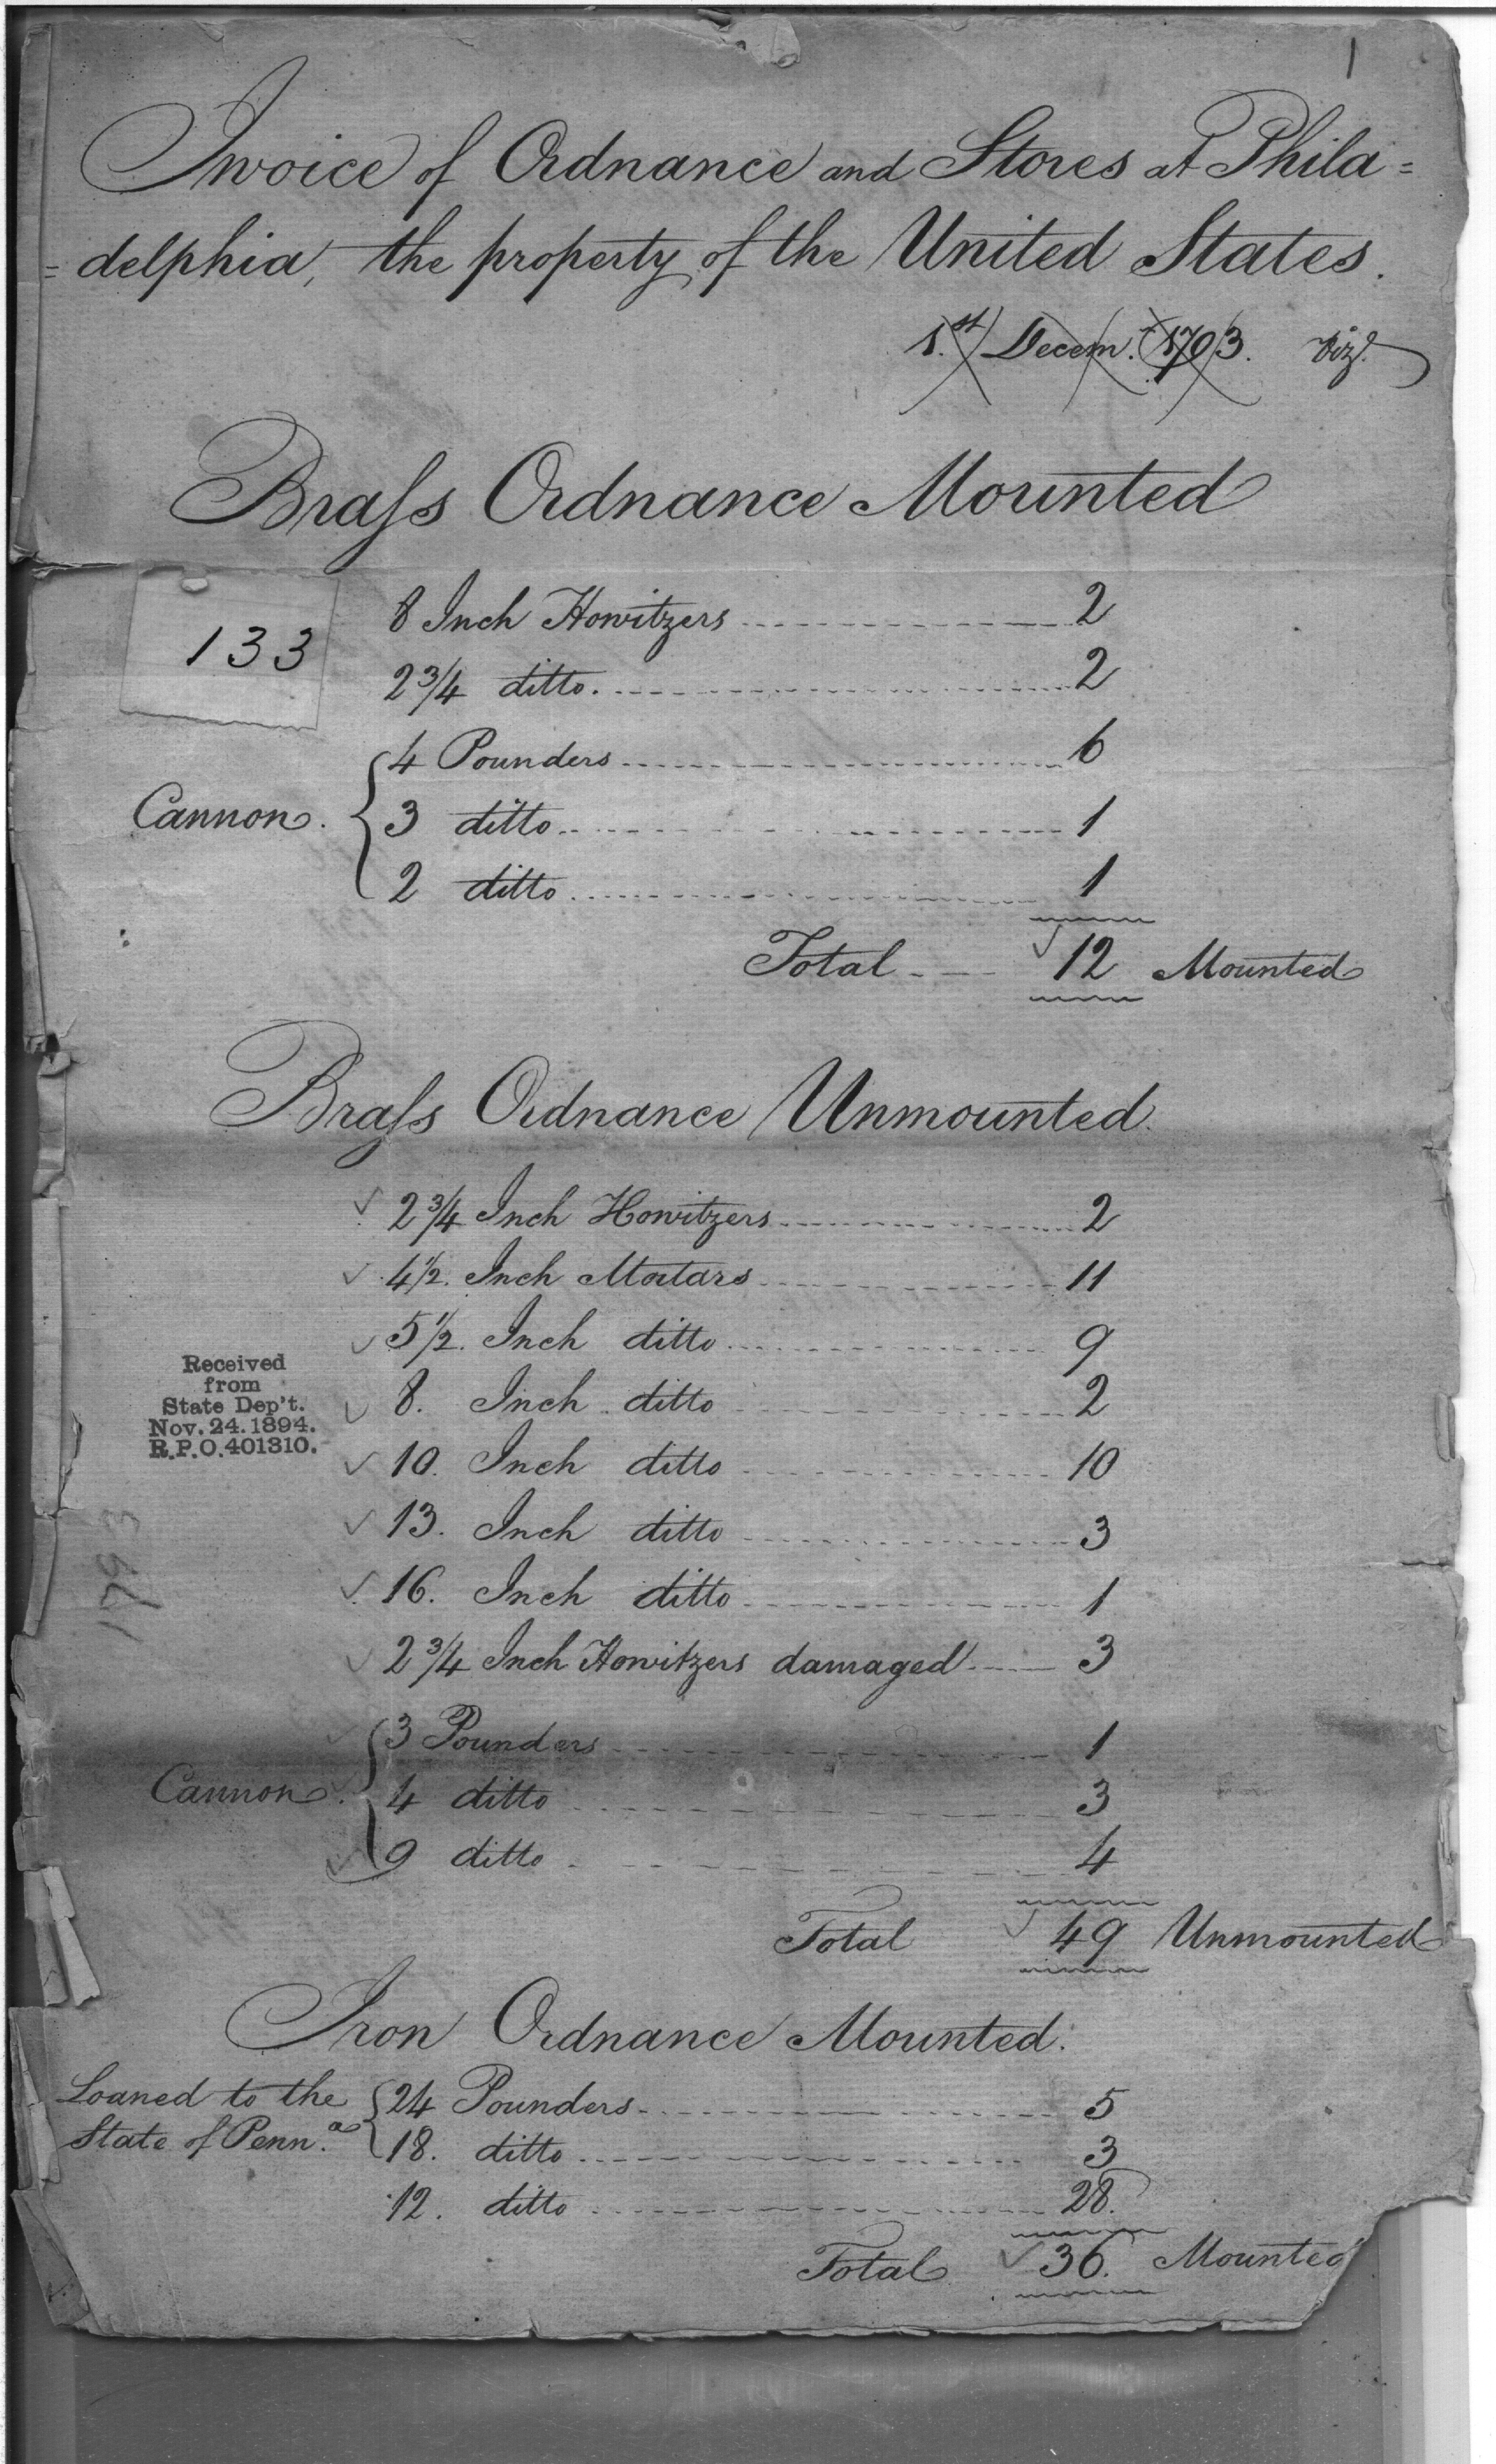 1
Invoice of Ordnance and Stores at Phila=
=delphia, the property of the United States.
1.st Decem.r 1793. Vizt.
Braſs Ordnance Mounted
133
8 Inch Howitzers 2
2 3/4 ditto. 2
Cannon.
4 Pounders 6
3 ditto 1
2 ditto 1
Total 12 Mounted
Braſs Ordnance Unmounted.
2 3/4 Inch Howitzers 2
4 1/2. Inch Mortars 11
5 1/2. Inch ditto 9
8. Inch ditto 2
10. Inch ditto 10
13. Inch ditto 3
16. Inch ditto 1
2 3/4 Inch Howitzers damaged 3
Received
from
State Dep't.
Nov. 24. 1894.
R.P.O. 401310.
1793
Cannon.
3 Pounders 1
4 ditto 3
9 ditto 4
Total 49 Unmounted
Iron Ordnance Mounted.
Loaned to the
State of Penn.a
24 Pounders 5
18. ditto 3
12. ditto 28.
Total 36. Mounted